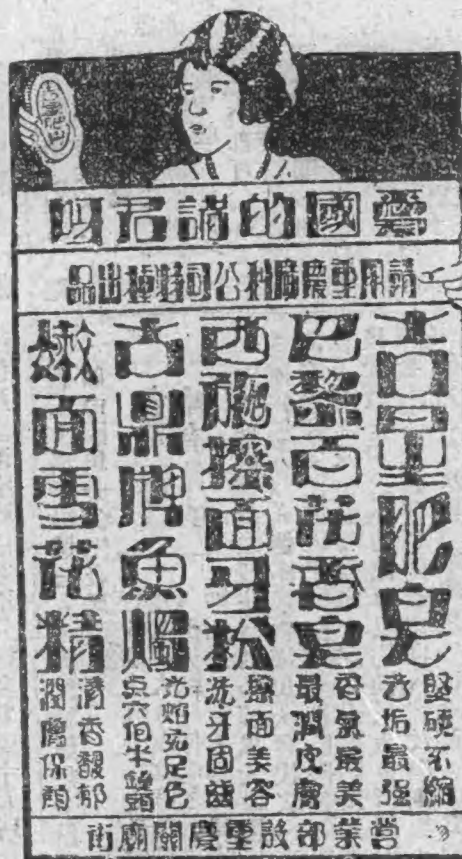 吉星肥皂
愛國的諸君呀
請用重慶廣利公司特種出品
吉星肥皂
堅硬不縮
去垢最强
巴黎百花香皂
香氣最美
最潤皮膚
西施擦面牙粉
擦面美容
洗牙固齒
古鼎牌魚燭
光焰充足色
嫩面雪花精
清香馥郁
潤膚保顏
營業部設重慶關廟街